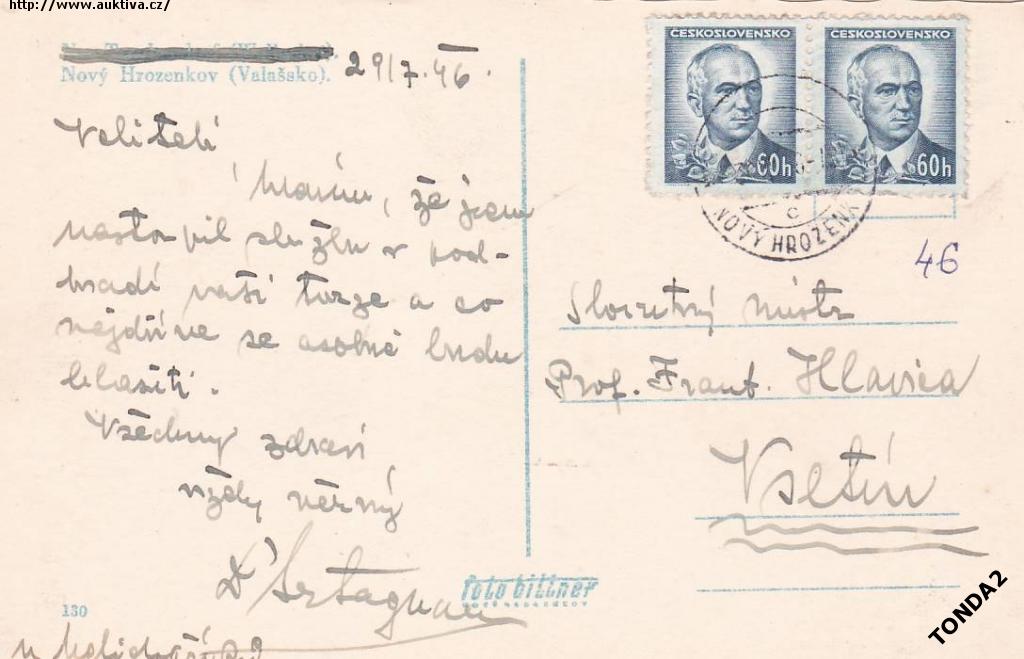 http://www.auktiva.cz/
Nový Hrozenkov (Valašsko).
29/7.46.
Veliteli
hlásím, že jsem
nastoupil službu v pod-
hradí vaší tvrze a co
nejdříve se osobně budu
hlásiti.
Všechny zdraví
vždy věrný
D'Artagnan
130
foto bittner
ČESKOSLOVENSKO
60h
ČESKOSLOVENSKO
60h
NOVÝ HROZENK
c
46
Slovutný mistr
Prof. Frant. Hlavica
Vsetín
TONDA2